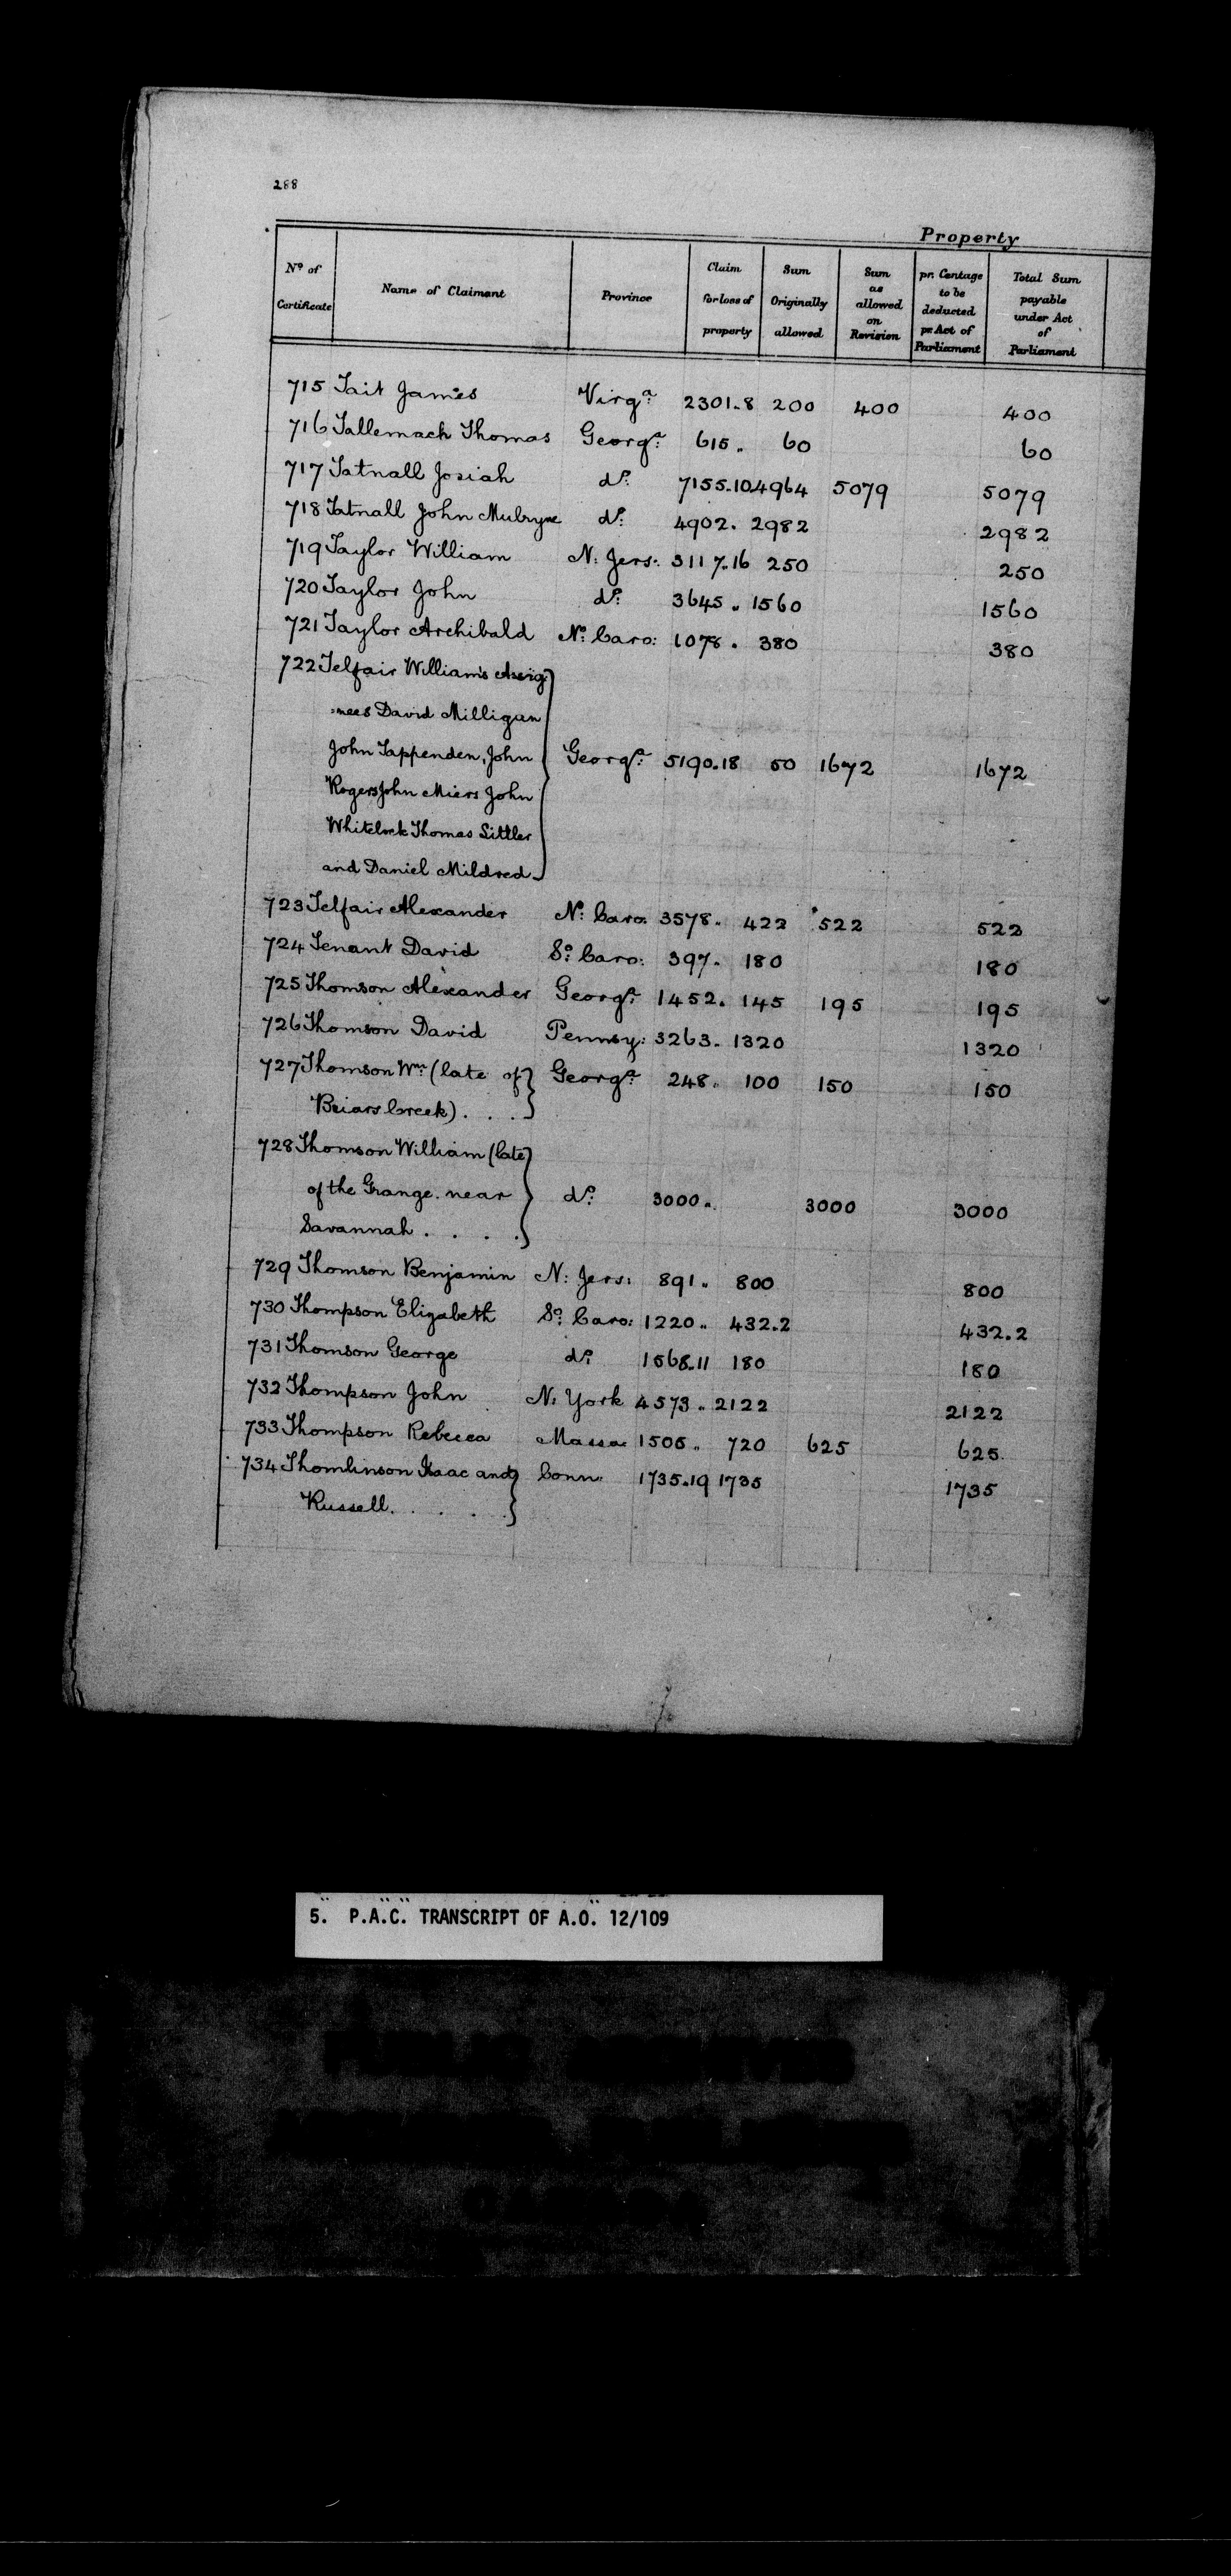 288
Property
No of Certificate Name of Claimant Province Claim for loss of property Sum Originally allowed Sum as allowed on Revision pr. Centage to be deducted pr Act of Parliament Total Sum payable under Act of Parliament
715 Tait James Virga: 2301.8 200 400 400
716 Tallemach Thomas Georga: 615. 60 60
717 Tatnall Josiah do: 7155.10 4964 5079 5079
718 Tatnall John Mulryne do: 4902. 2982 2982
719 Taylor William N: Jers: 3117.16 250 250
720 Taylor John do: 3645 .. 1560 1560
721 Taylor Archibald No: Caro: 1078. 380 380
722 Telfair William's Assig:
=nees David Milligan
John Tappenden, John Georga: 5190.18 50 1672 1672
Rogers John Miers John
Whitelock Thomas Littler
and Daniel Mildred
723 Telfair Alexander No: Caro: 3578. 422 522 522
724 Tenant David So: Caro: 397. 180 180
725 Thomson Alexander Georga: 1452. 145 195 195
726 Thomson David Pennsy: 3263. 1320 1320
727 Thomson Wm: (late of Georga: 248. 100 150 150
Briars Creek) . . .
728 Thomson William (late
of the Grange. near do: 3000.. 3000 3000
Savannah . . . .
729 Thomson Benjamin N: Jers: 891.. 800 800
730 Thompson Elizabeth So: Caro: 1220.. 432.2 432.2
731 Thomson George do: 1568.11 180 180
732 Thompson John N: York 4573.. 2122 2122
733 Thompson Rebecca Massa: 1505.. 720 625 625
734 Thomlinson Isaac and Conn: 1735.19 1735 1735
Russell. . . . .
5. P.A.C. TRANSCRIPT OF A.O. 12/109